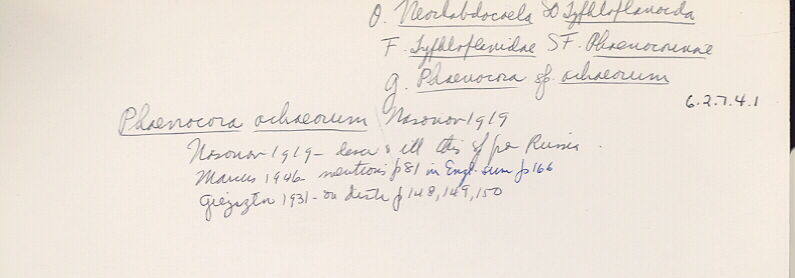 O. Neorhabdocoela SO Typhloplanoida
F. Typhloplanidae SF. Phaenocorinae
g. Phaenocora sp. achaeorum
6.2.7.4.1
Phaenocora achaeorum Nasonov 1919
Nasonov 1919 - descr & ill this sp for Russia.
Marcus 1946 - mentions p81 in Engl. sum p166
1931 - on distr p 148, 149, 150